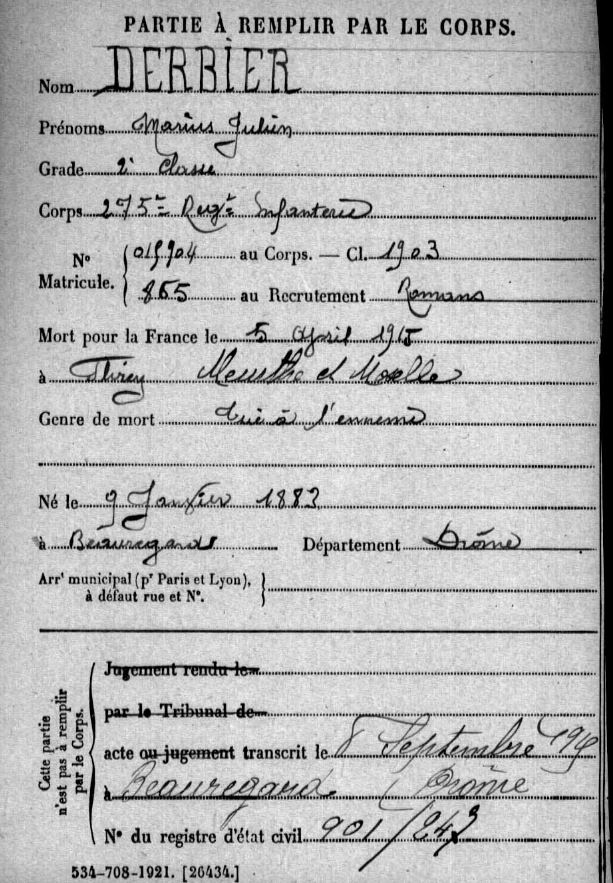 PARTIE À REMPLIR PAR LE CORPS.
Nom DERBIER
Prénoms Marius Julien
Grade 2e Classe
Corps 275e Regt Infanterie
N° Matricule. 015904 au Corps. — Cl. 1903
865 au Recrutement Romans
Mort pour la France le 5 April 1915
à Flirey Meurthe et Moselle
Genre de mort tué à l'ennemi
Né le 9 Janvier 1883
à Beauregard Département Drôme
Arrt municipal (pr Paris et Lyon),
à défaut rue et N°.
Cette partie n'est pas à remplir par le Corps.
Jugement rendu le
par le Tribunal de
acte ou jugement transcrit le 8 Septembre
à Beauregard (Drôme
N° du registre d'état civil 901/247
534-708-1921. [26434.]